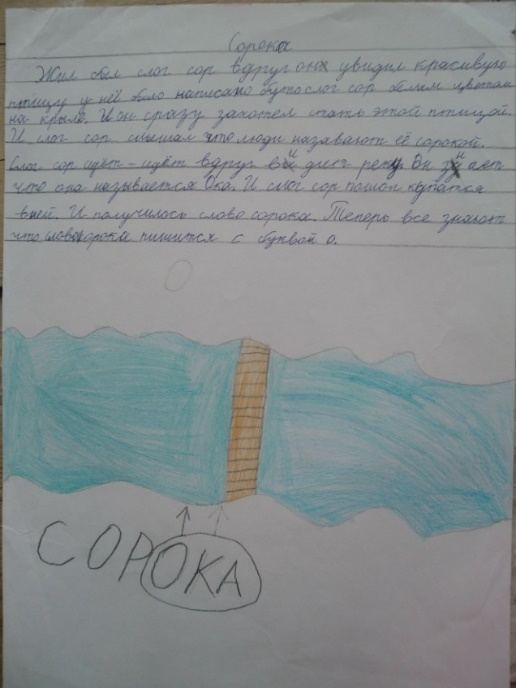 Сорока
Жил был слог сор вдруг он увидил красивую
птицу у неё было написано будто слог сор белым цветом
на крыле. И он сразу захотел стать этой птицой.
И слог сор слышал что люди называют её сорокой.
Слог сор идёт – идёт вдруг видит реку Он знает
что она называется Ока. И слог сор пошол купатся
в ней. И получилось слово сорока. Теперь все знают
что слово сорока пишится с буквой о.
СОРОКА